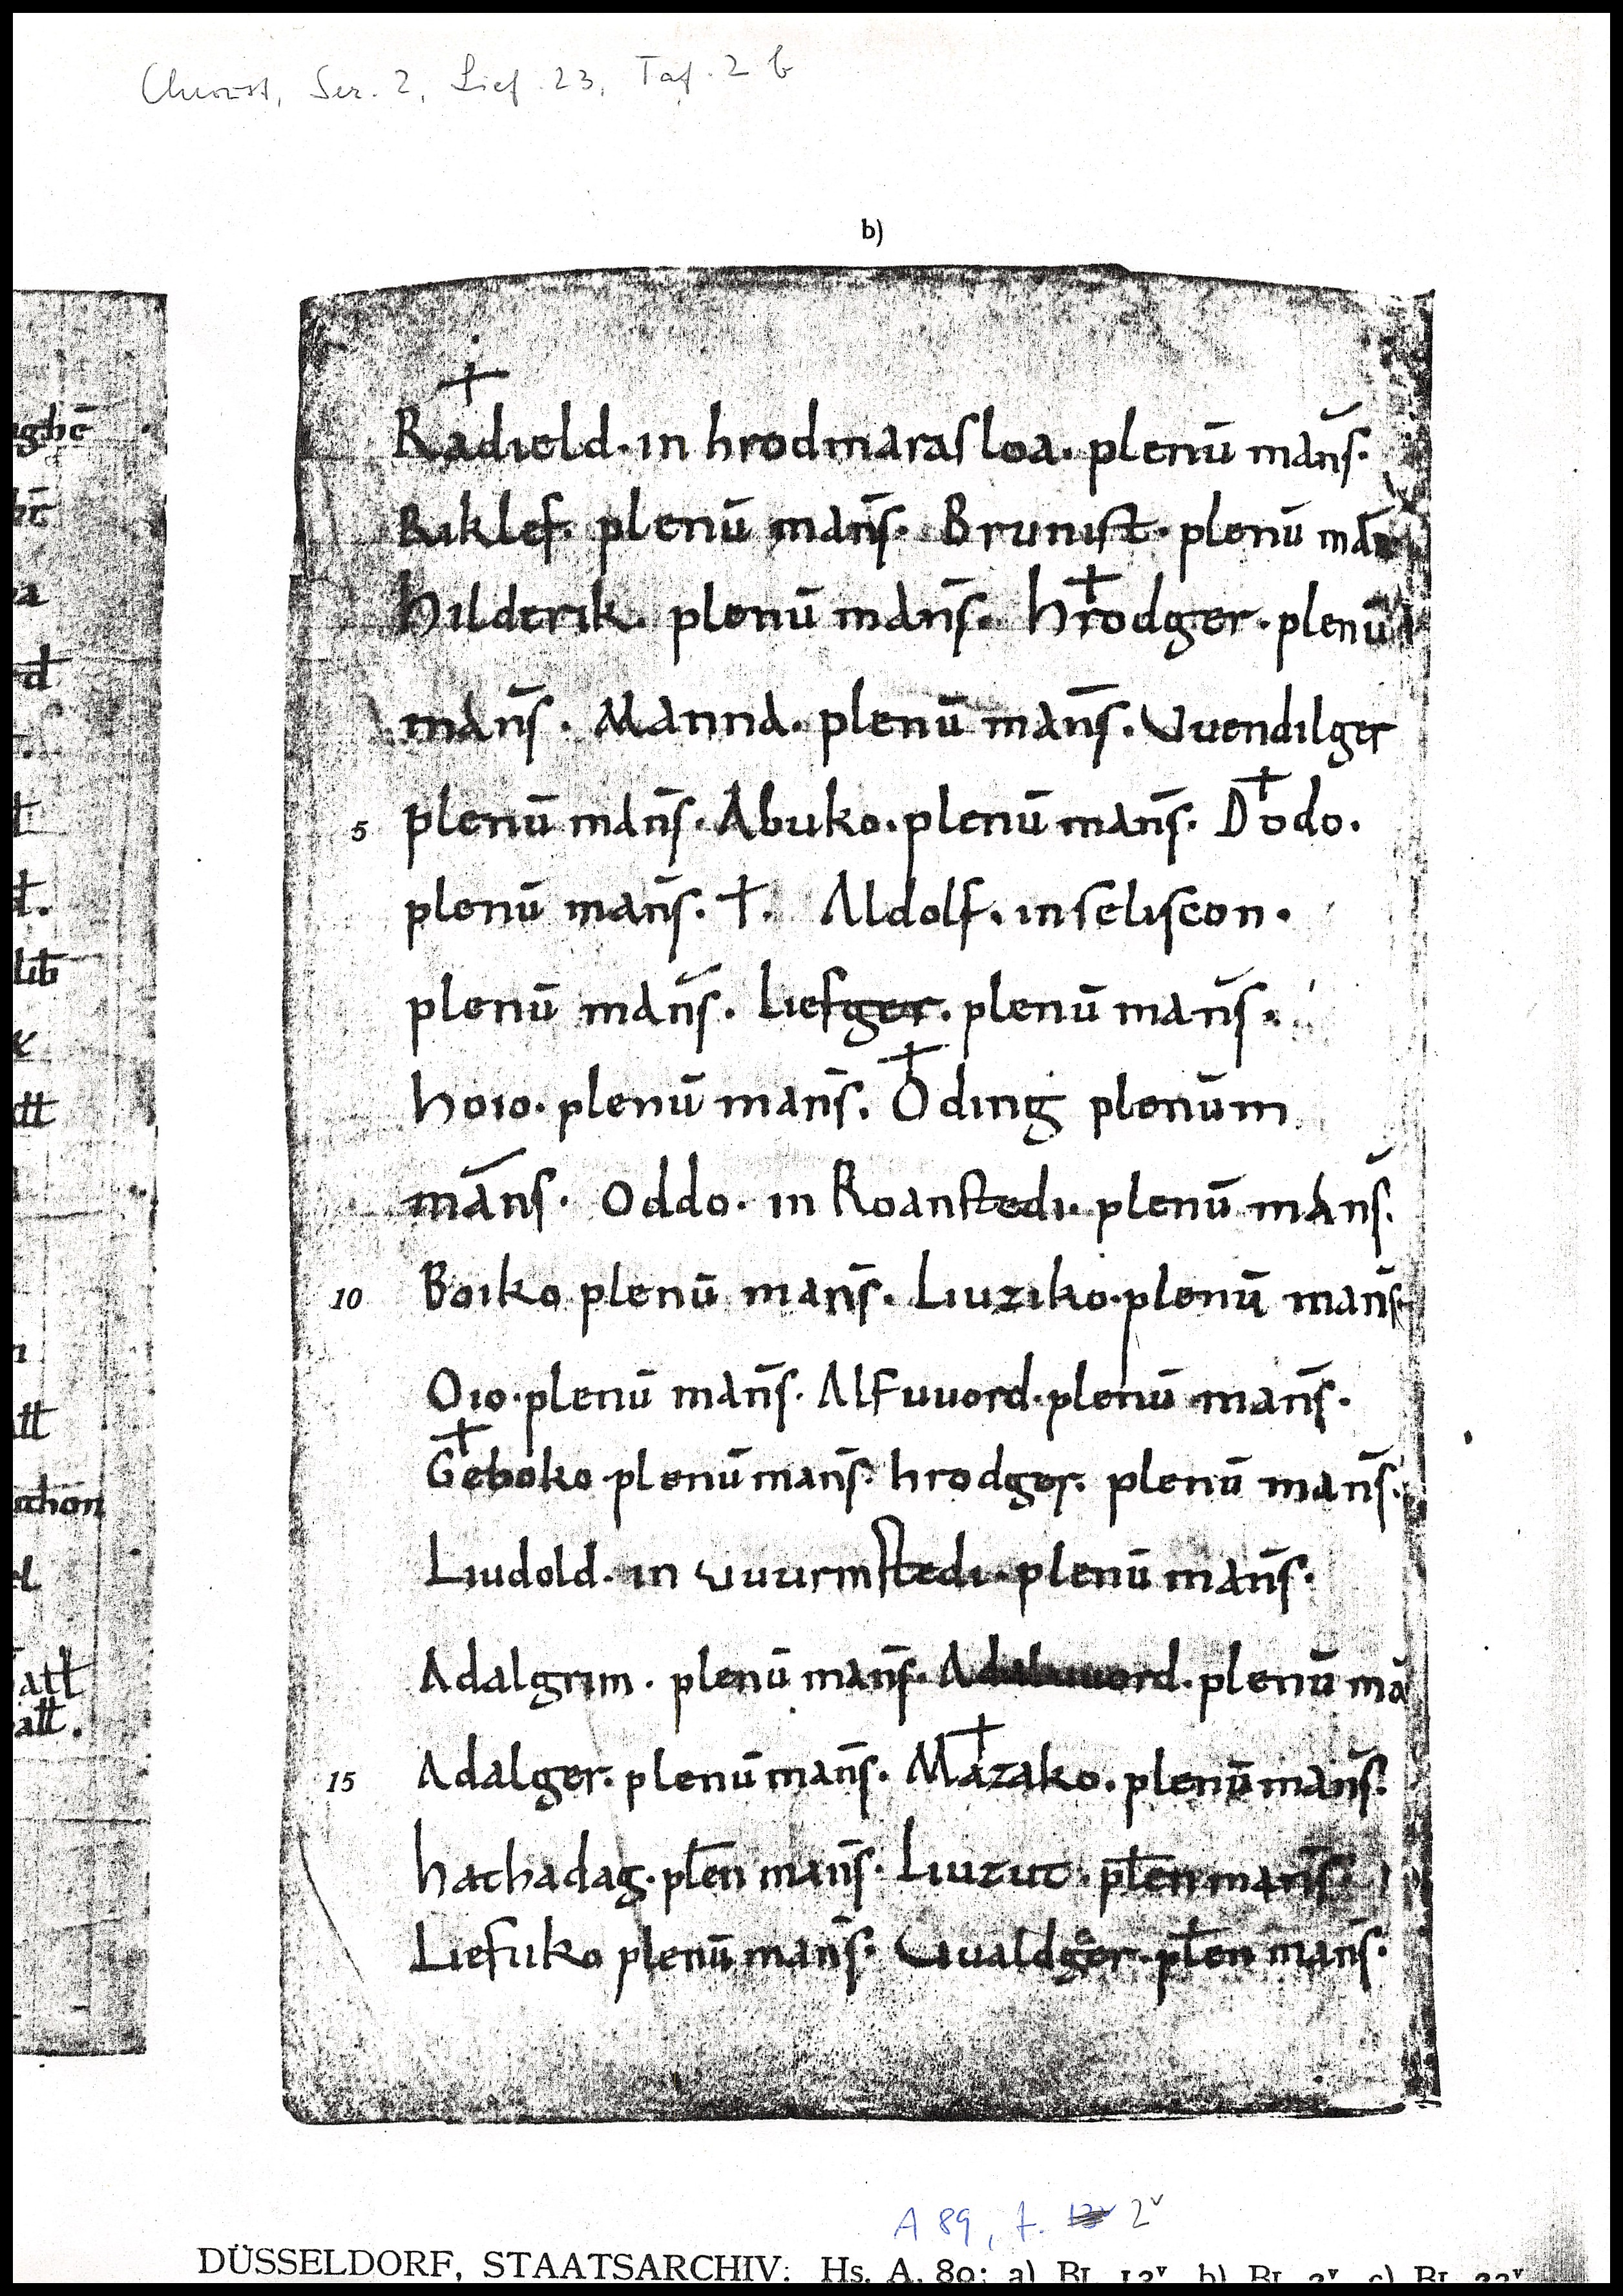 Chroust, Ser. 2, Lief. 23, Taf. 2 b
b)
ghē
a
d
lib
att
thon
att
att.
†
Radield. in hrodmarasloa. plenū man̄s.
Riklef. plenū man̄s. Brunist. plenū man̄
Hilderik. plenū man̄s. hr†odger. plenū
man̄s. Manna. plenū man̄s. Vuendilger
5 plenū man̄s. Abuko. plenū man̄s. D†odo.
plenū man̄s. †. Aldolf. in seliscon.
plenū man̄s. Liefger. plenū man̄s.
hoio. plenū man̄s. †Oding plenūm
mān̄s. Oddo. in Roanstedi. plenū man̄s.
10 Boiko plenū man̄s. Liuziko. plenū man̄s
Oio. plenū man̄s. Alfuuord. plenū man̄s.
†Geboko. plenū man̄s. hrodger. plenū man̄s.
Liudold. in uuurmstedi. plenū man̄s.
Adalgrim. plenū man̄s. Adaluuord. plenū mā
15 Adalger. plenū man̄s. M†azako. plenū man̄s.
hathadag. plen̄ man̄s. Liuzut. plen̄ man̄s.
Liefuko plenū man̄s. Uualdger. plen̄ man̄s.
A 89, f. 2v
DÜSSELDORF, STAATSARCHIV: Hs. A. 89: a) Bl. 12v b) Bl. 2v c) Bl. 22v